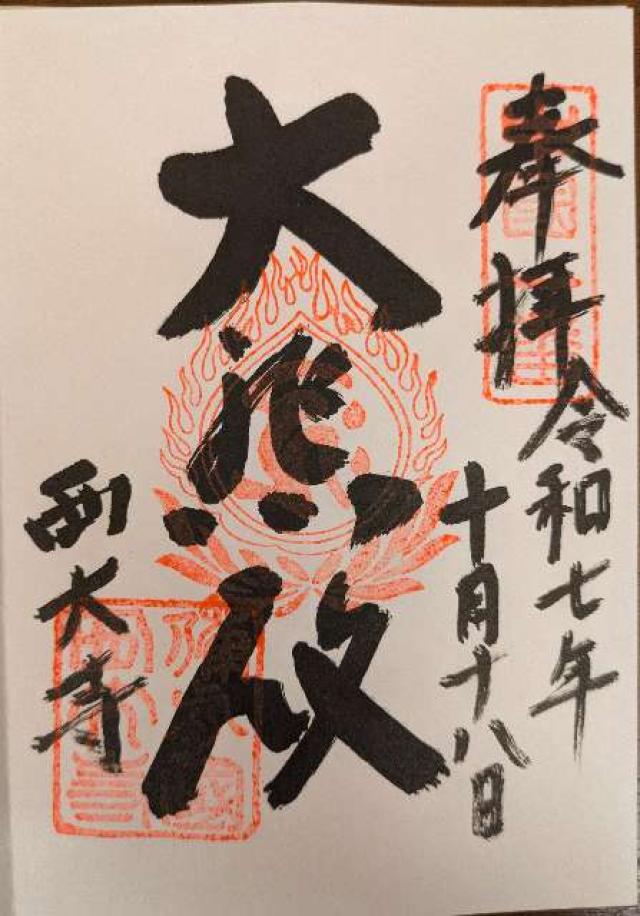 奉拝
令和七年
十月十八日
大悲殿
西大寺